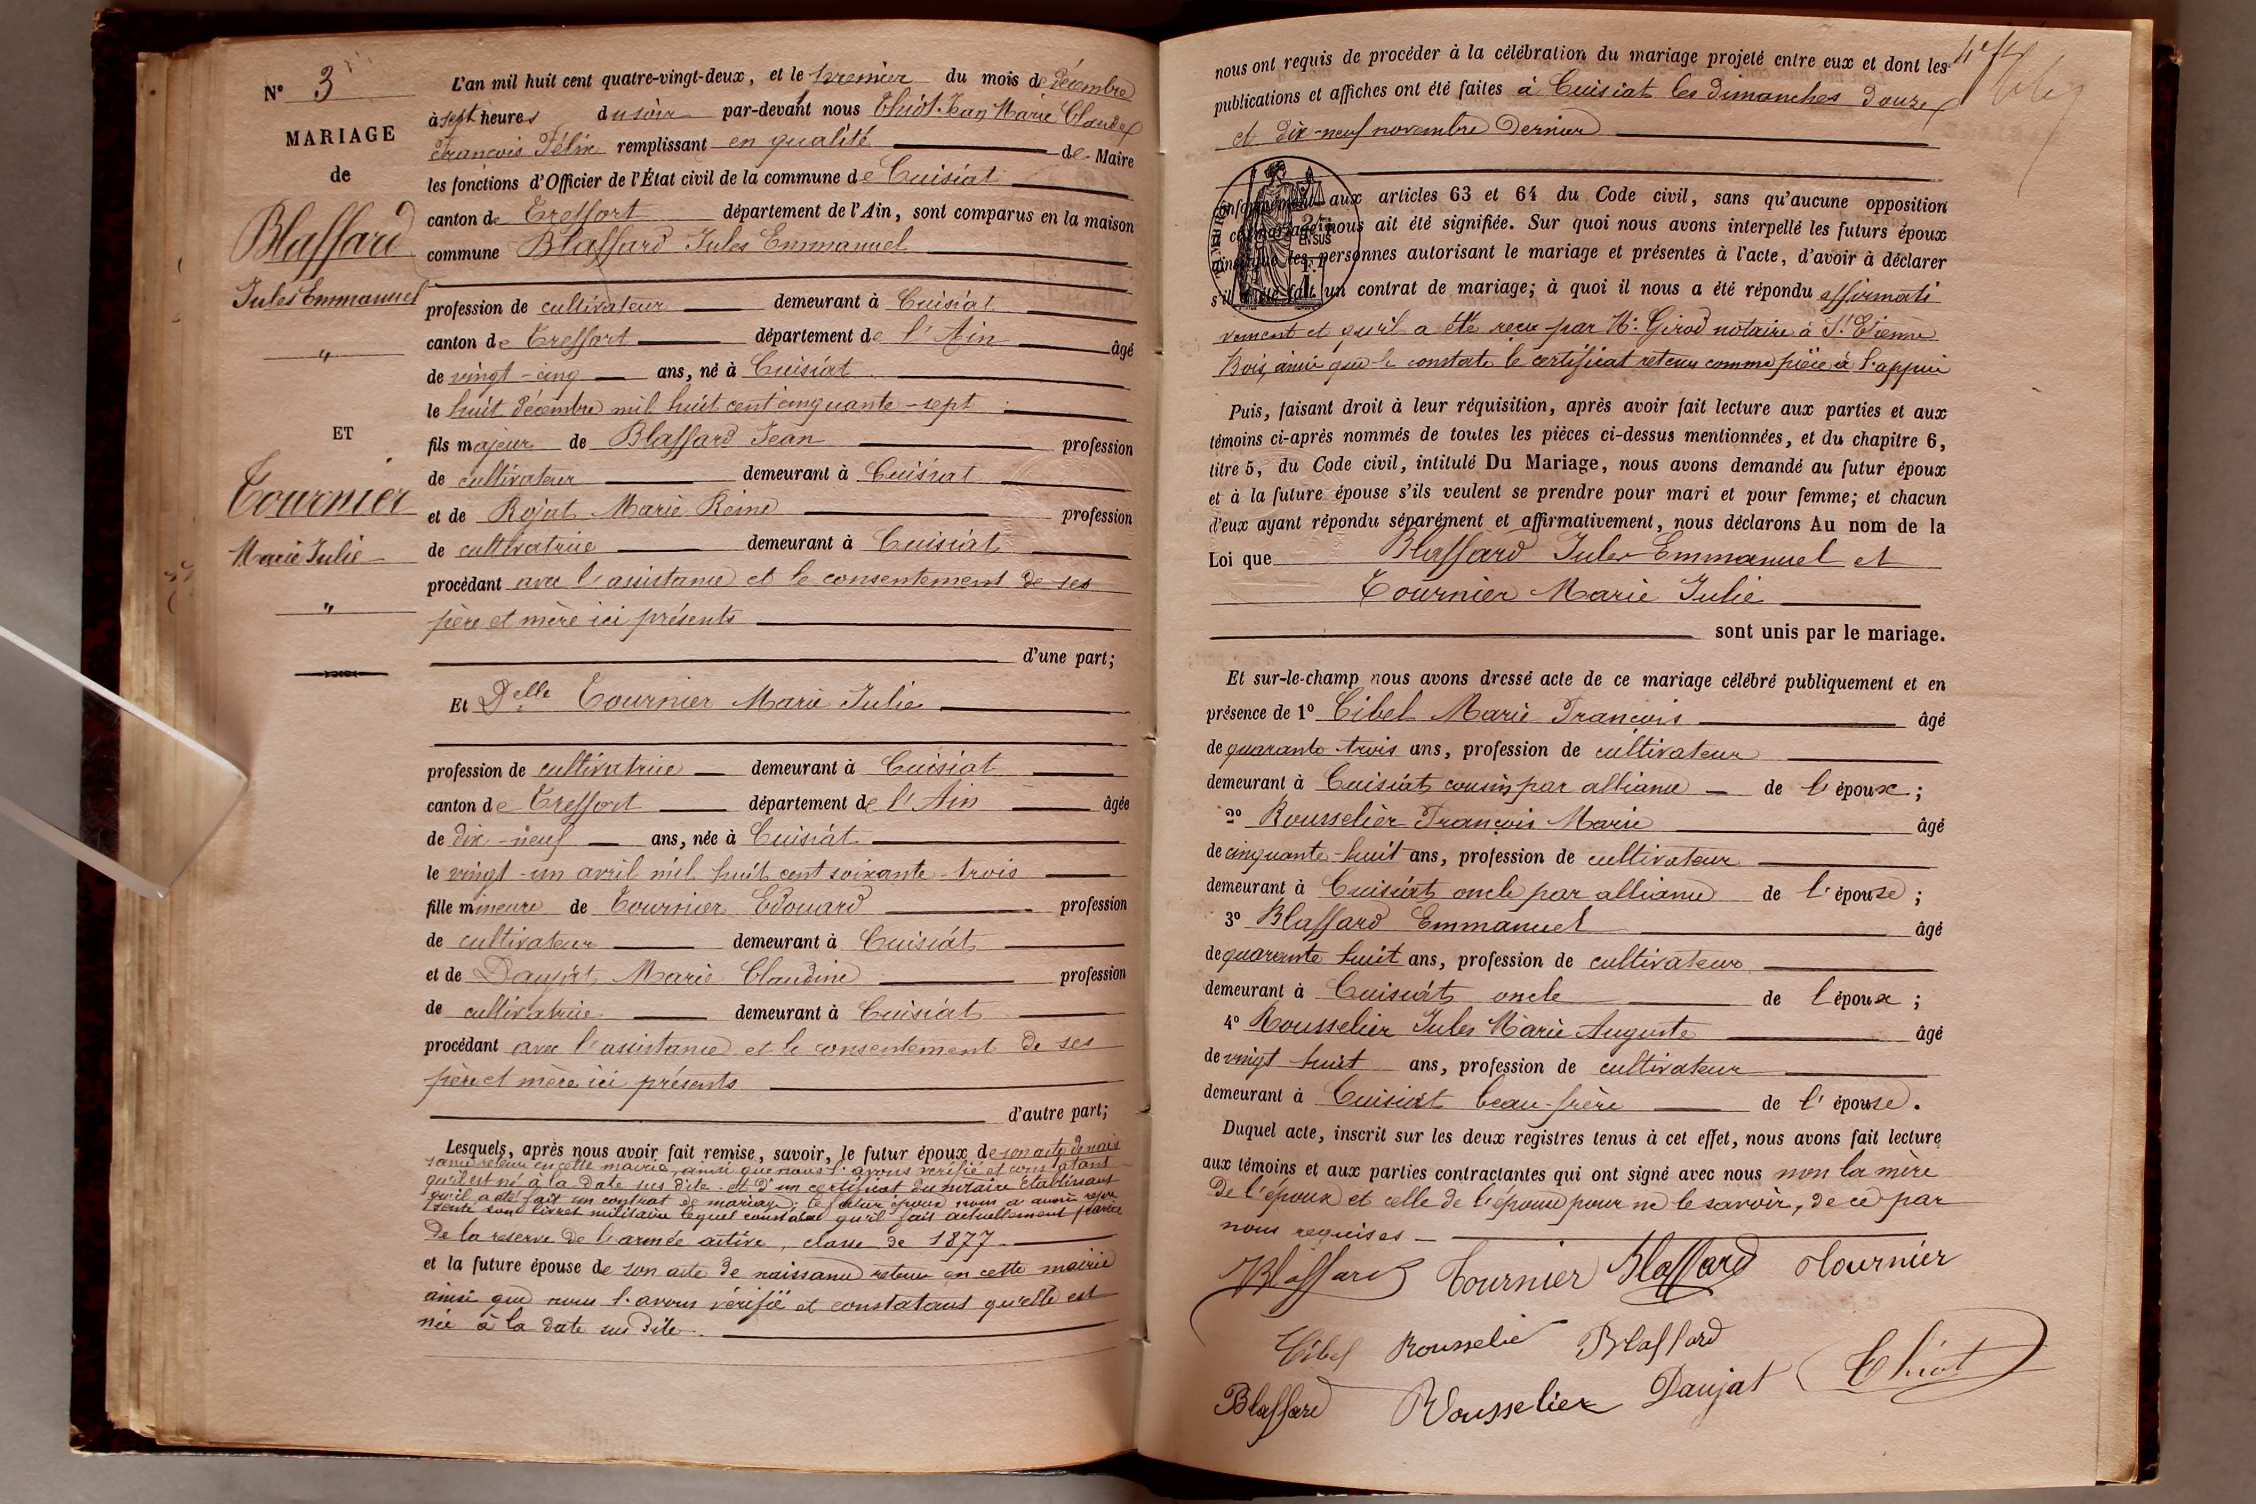 N° 3
MARIAGE
de
Blaffard
Jules Emmanuel
"
ET
Tournier
Marie Julie
"
L'an mil huit cent quatre-vingt-deux, et le premier du mois de décembre
à sept heures du soir par-devant nous Chiot Jean Marie Claude
François Félix remplissant en qualité de Maire
les fonctions d'Officier de l'État civil de la commune de Cuisiat
canton de Treffort département de l'Ain, sont comparus en la maison
commune Blaffard Jules Emmanuel
profession de cultivateur demeurant à Cuisiat
canton de Treffort département de l'Ain âgé
de vingt-cinq ans, né à Cuisiat
le huit décembre mil huit cent cinquante-sept
fils majeur de Blaffard Jean profession
de cultivateur demeurant à Cuisiat
et de Rojat Marie Reine profession
de cultivatrice demeurant à Cuisiat
procédant avec l'assistance et le consentement de ses
père et mère ici présents
d'une part;
Et Delle Tournier Marie Julie
profession de cultivatrice demeurant à Cuisiat
canton de Treffort département de l'Ain âgée
de dix-neuf ans, née à Cuisiat
le vingt-un avril mil huit cent soixante-trois
fille mineure de Tournier Edouard profession
de cultivateur demeurant à Cuisiat
et de Daujat Marie Claudine profession
de cultivatrice demeurant à Cuisiat
procédant avec l'assistance et le consentement de ses
père et mère ici présents
d'autre part;
Lesquels, après nous avoir fait remise, savoir, le futur époux de son acte de nais
sance retenu en cette mairie, ainsi que nous l'avons vérifié et constatant
qu'il est né à la date sus dite et d'un certificat du notaire établissant
qu'il a été fait un contrat de mariage, le futur époux nous a aussi repré
senté son livret militaire lequel constate qu'il fait actuellement partie
de la reserve de l'armée active, classe de 1877
et la future épouse de son acte de naissance retenu en cette mairie
ainsi que nous l'avons vérifié et constatant qu'elle est
née à la date sus dite.
nous ont requis de procéder à la célébration du mariage projeté entre eux et dont les
publications et affiches ont été faites à Cuisiat les dimanches douze
et dix-neuf novembre dernier
conformément aux articles 63 et 64 du Code civil, sans qu'aucune opposition
à ce mariage nous ait été signifiée. Sur quoi nous avons interpellé les futurs époux
ainsi que les personnes autorisant le mariage et présentes à l'acte, d'avoir à déclarer
s'il a été fait un contrat de mariage; à quoi il nous a été répondu affirmati
vement et qu'il a été reçu par Me Girod notaire à St Etienne
Bois, ainsi que le constate le certificat retenu comme pièce à l'appui
Puis, faisant droit à leur réquisition, après avoir fait lecture aux parties et aux
témoins ci-après nommés de toutes les pièces ci-dessus mentionnées, et du chapitre 6,
titre 5, du Code civil, intitulé Du Mariage, nous avons demandé au futur époux
et à la future épouse s'ils veulent se prendre pour mari et pour femme; et chacun
d'eux ayant répondu séparément et affirmativement, nous déclarons Au nom de la
Loi que Blaffard Jules Emmanuel et
Tournier Marie Julie
sont unis par le mariage.
Et sur-le-champ nous avons dressé acte de ce mariage célébré publiquement et en
présence de 1° Cibel Marie François âgé
de quarante trois ans, profession de cultivateur
demeurant à Cuisiat cousin par alliance de l'époux;
2° Rousselier François Marie âgé
de cinquante-huit ans, profession de cultivateur
demeurant à Cuisiat oncle par alliance de l'épouse;
3° Blaffard Emmanuel âgé
de quarante huit ans, profession de cultivateur
demeurant à Cuisiat oncle de l'époux;
4° Rousselier Jules Marie Auguste âgé
de vingt huit ans, profession de cultivateur
demeurant à Cuisiat beau-frère de l'épouse.
Duquel acte, inscrit sur les deux registres tenus à cet effet, nous avons fait lecture
aux témoins et aux parties contractantes qui ont signé avec nous non la mère
de l'époux et celle de l'épouse pour ne le savoir, de ce par
nous requises
Blaffard Tournier Blaffard Tournier
Cibel Rousselier Blaffard
Blaffard Rousselier Daujat Chiot